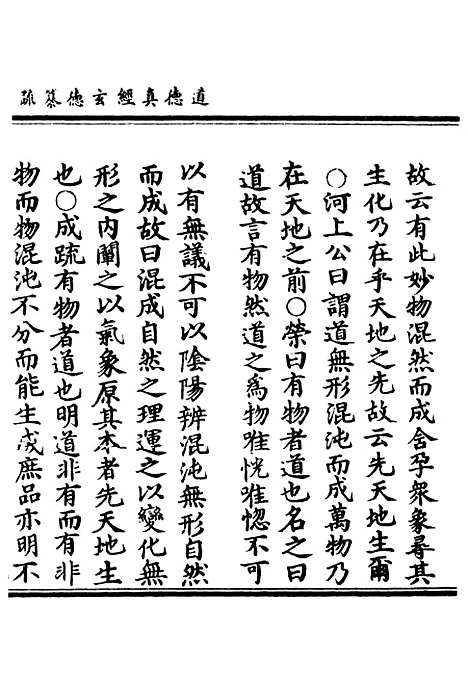 道德真經玄德纂疏
故云有此妙物混然而成含孕眾象尋其
生化乃在乎天地之先故云先天地生爾
○河上公曰謂道無形混沌而成萬物乃
在天地之前○榮曰有物者道也名之曰
道故言有物然道之爲物唯恍唯惚不可
以有無議不可以陰陽辨混沌無形自然
而成故曰混成自然之理運之以變化無
形之内闡之以氣象原其本者先天地生
也○成疏有物者道也明道非有而有非
物而物混沌不分而能生成庶品亦明不